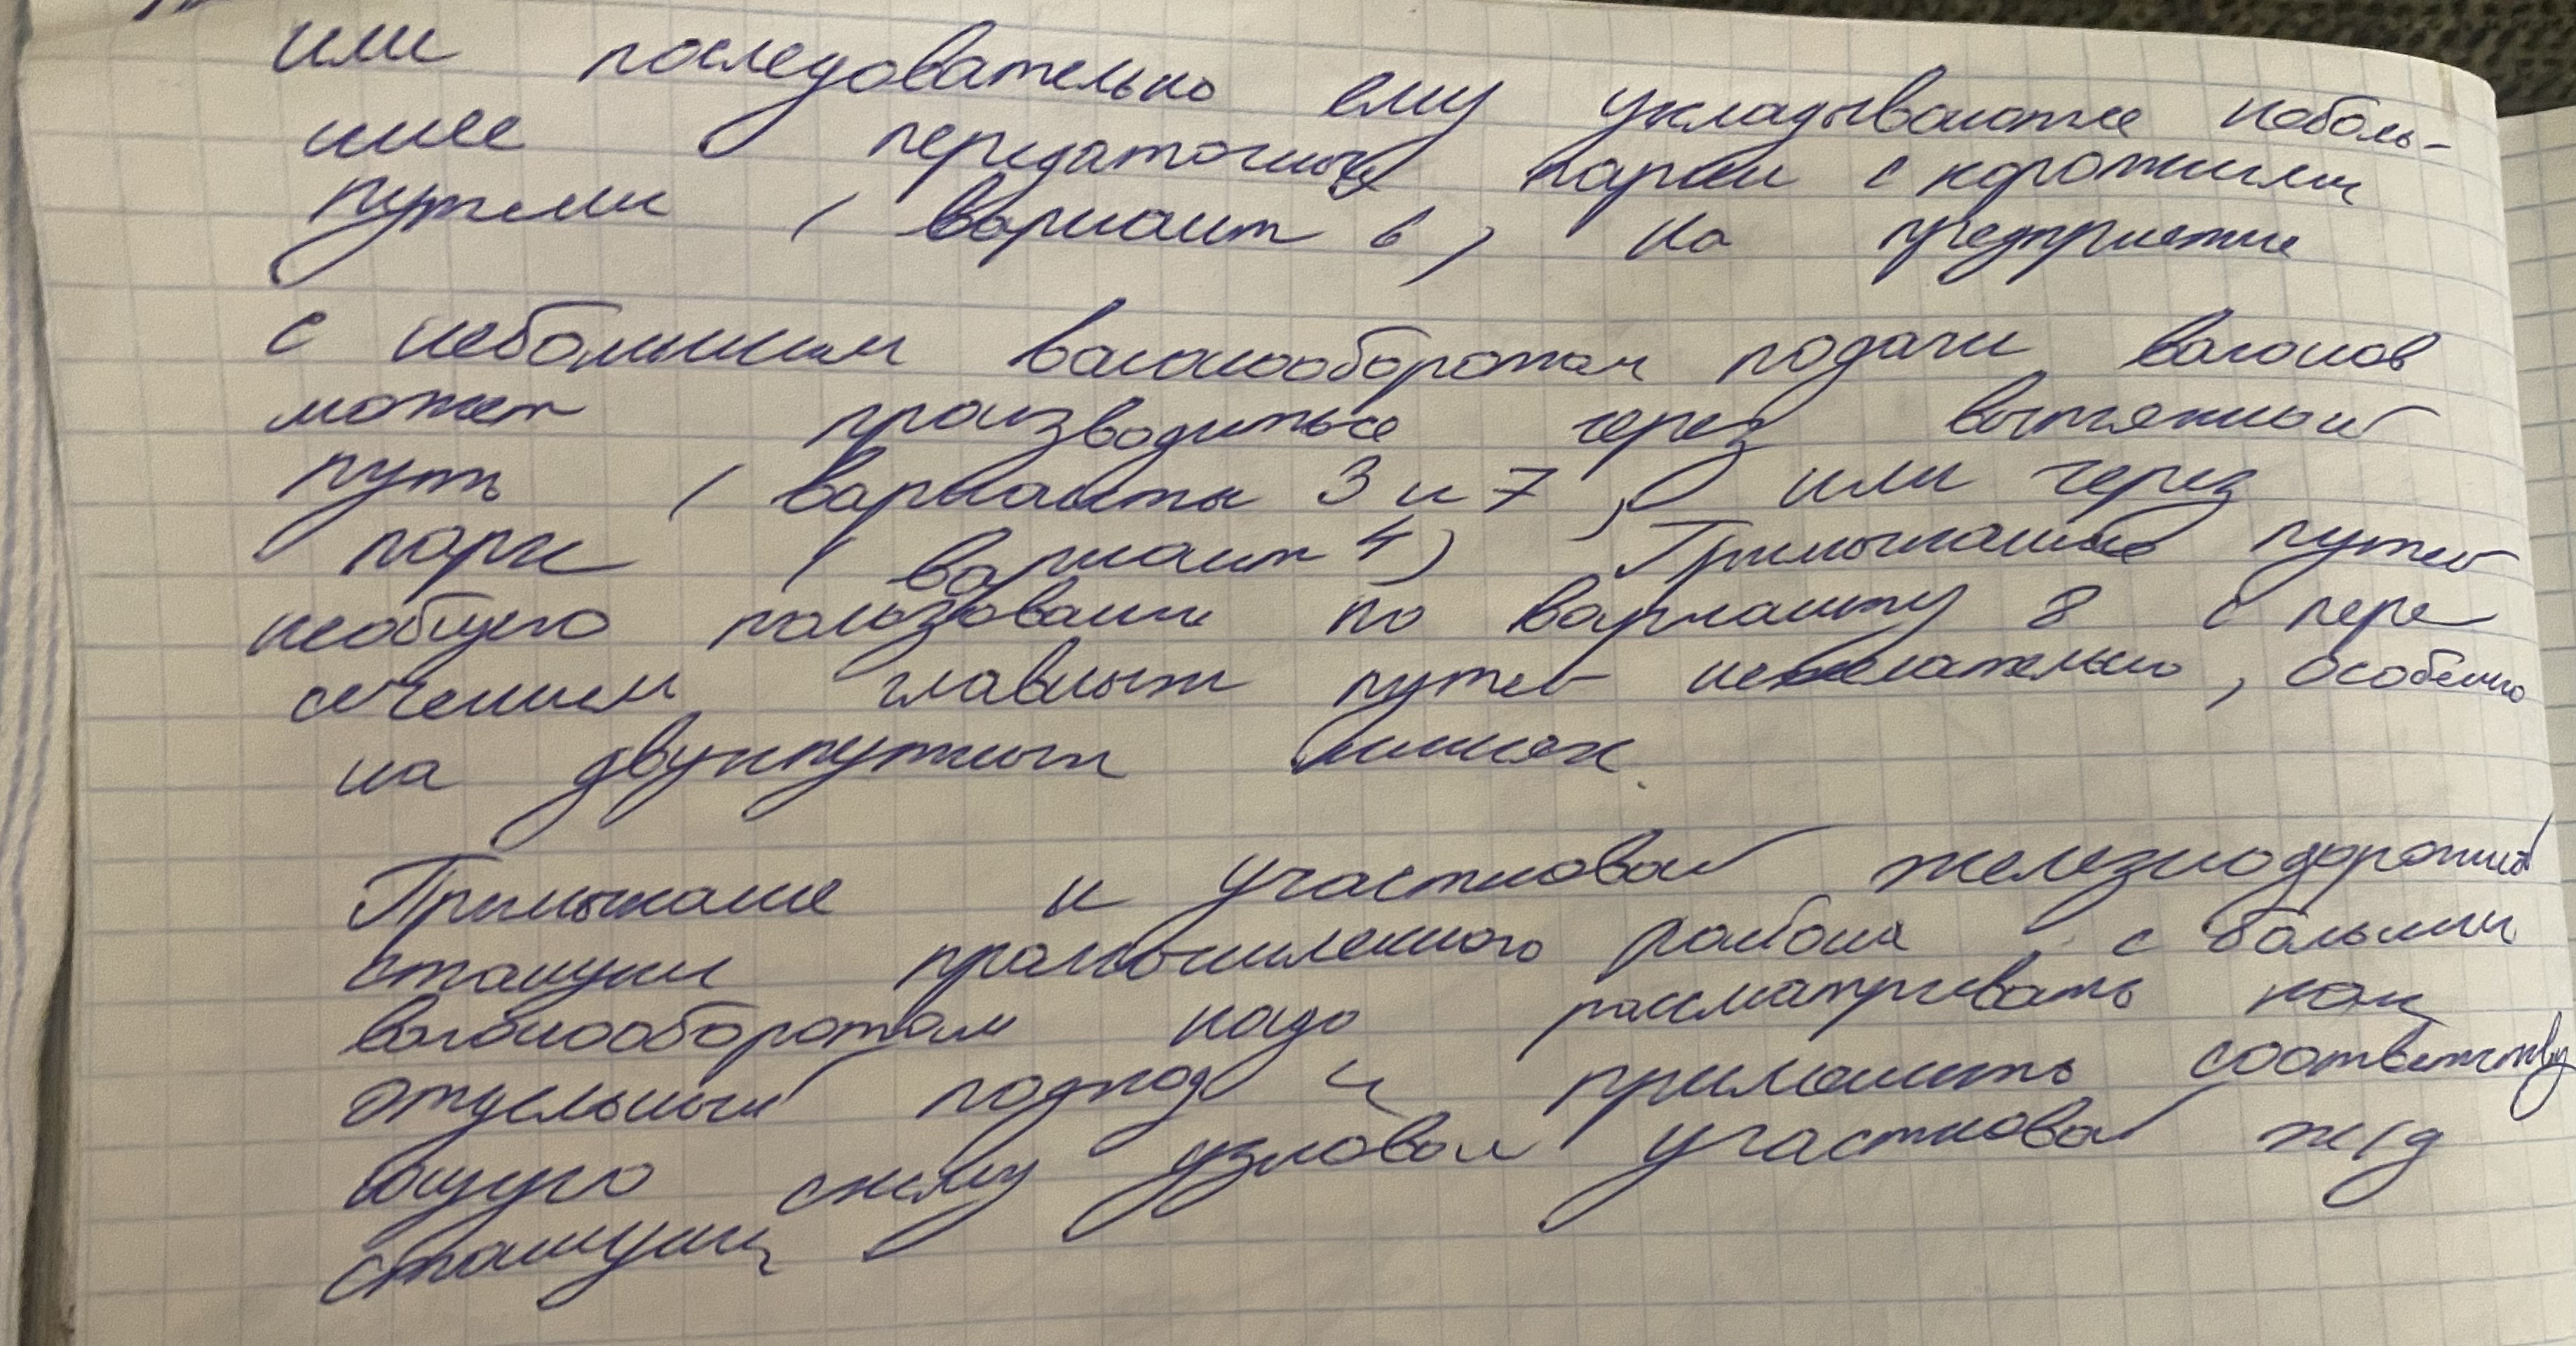 или последовательно ему укладываются неболь-
шие передаточные парки с короткими
путями (вариант 6) на предприятие
с небольшим вагонооборотом подачи вагонов
может производиться через вытяжной
путь (варианты 3 и 7), или через
парк (вариант 4) Примыкание путей
необщего пользования по варианту 8 с пере
сечением главных путей нежелательно, особенно
на двухпутных линиях.
Примыкание к участковой железнодорожной
станции промышленного района с большим
вагонооборотом надо рассматривать как
отдельный подход и применить соответству
ющую схему узловой участковой ж/д
станции